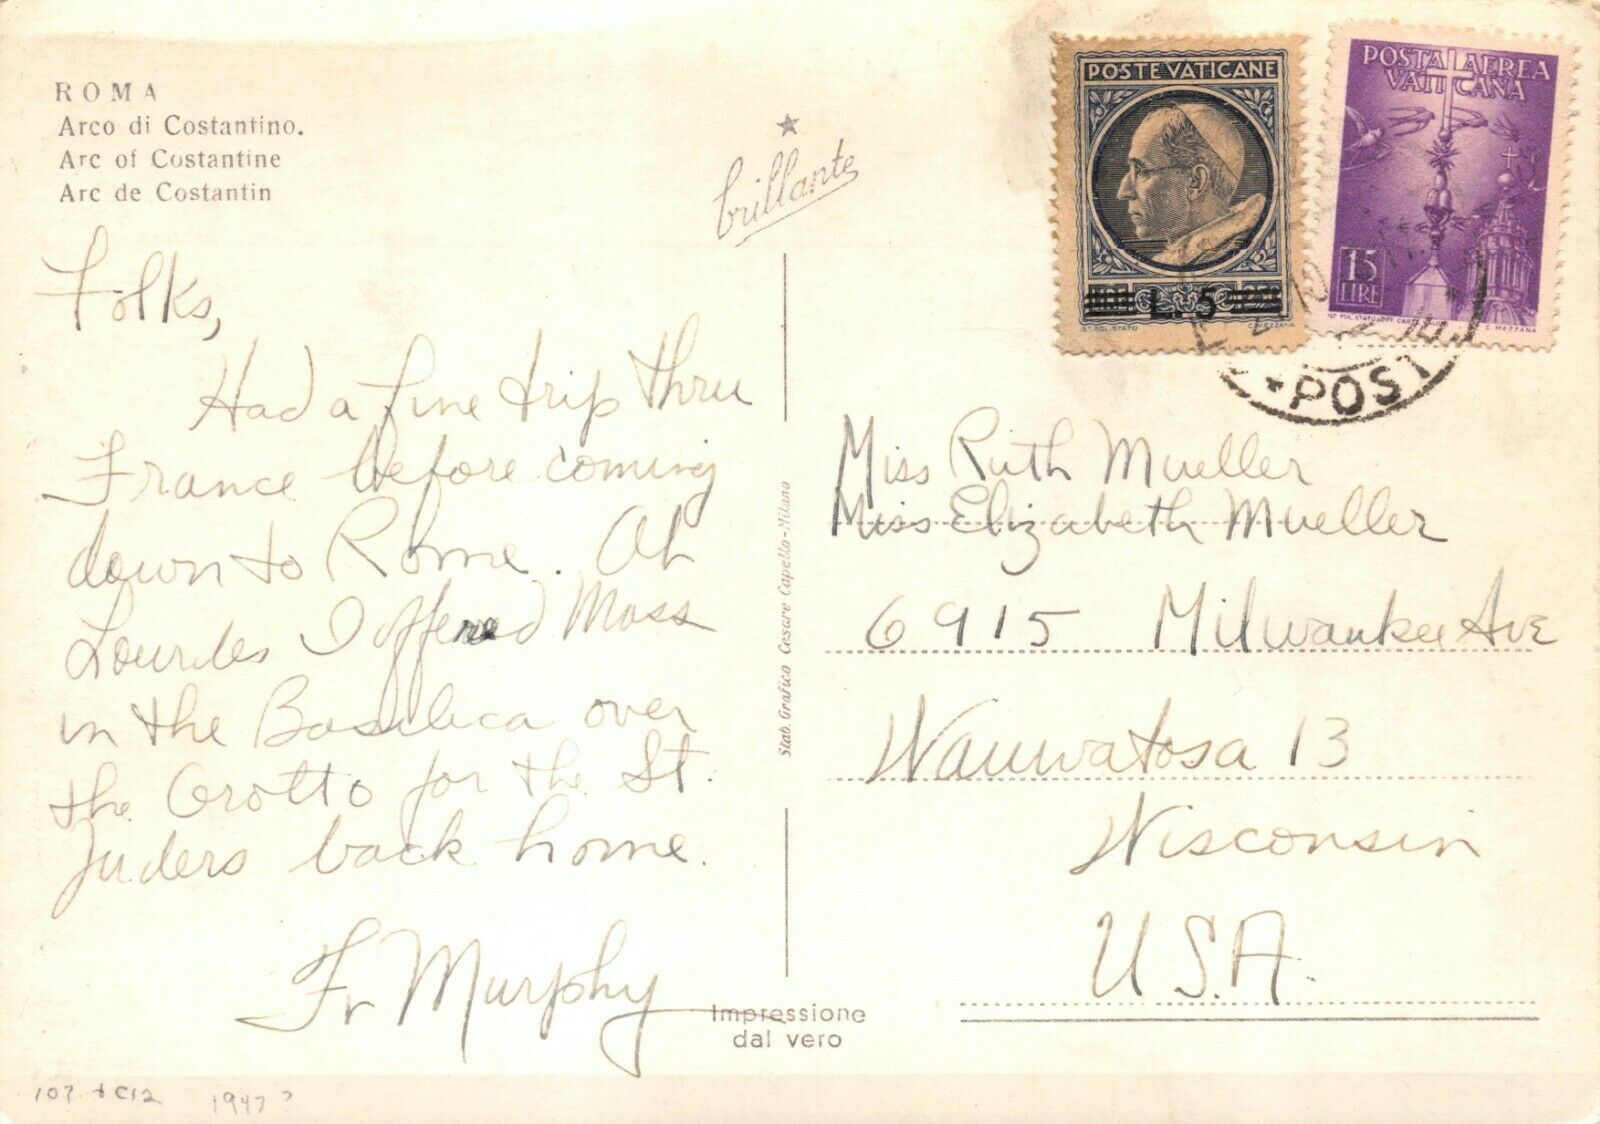 ROMA
Arco di Costantino.
Arc of Costantine
Arc de Costantin
brillante
POSTE VATICANE
L. 5
IST. POL. STATO
C. MEZZANA
POSTA AEREA
VATICANA
15
LIRE
IST. POL. STATO OFF. CARTE
C. MEZZANA
POST
Folks,
Had a fine trip thru
France before coming
down to Rome. At
Lourdes I offered Mass
in the Basilica over
the Grotto for the St.
Juders back home.
Fr Murphy
Stab. Grafico Cesare Capello-Milano
Miss Ruth Mueller
Miss Elizabeth Mueller
6915 Milwaukee Ave
Wauwatosa 13
Wisconsin
U.S.A.
Impressione
dal vero
107 + C12 1947?